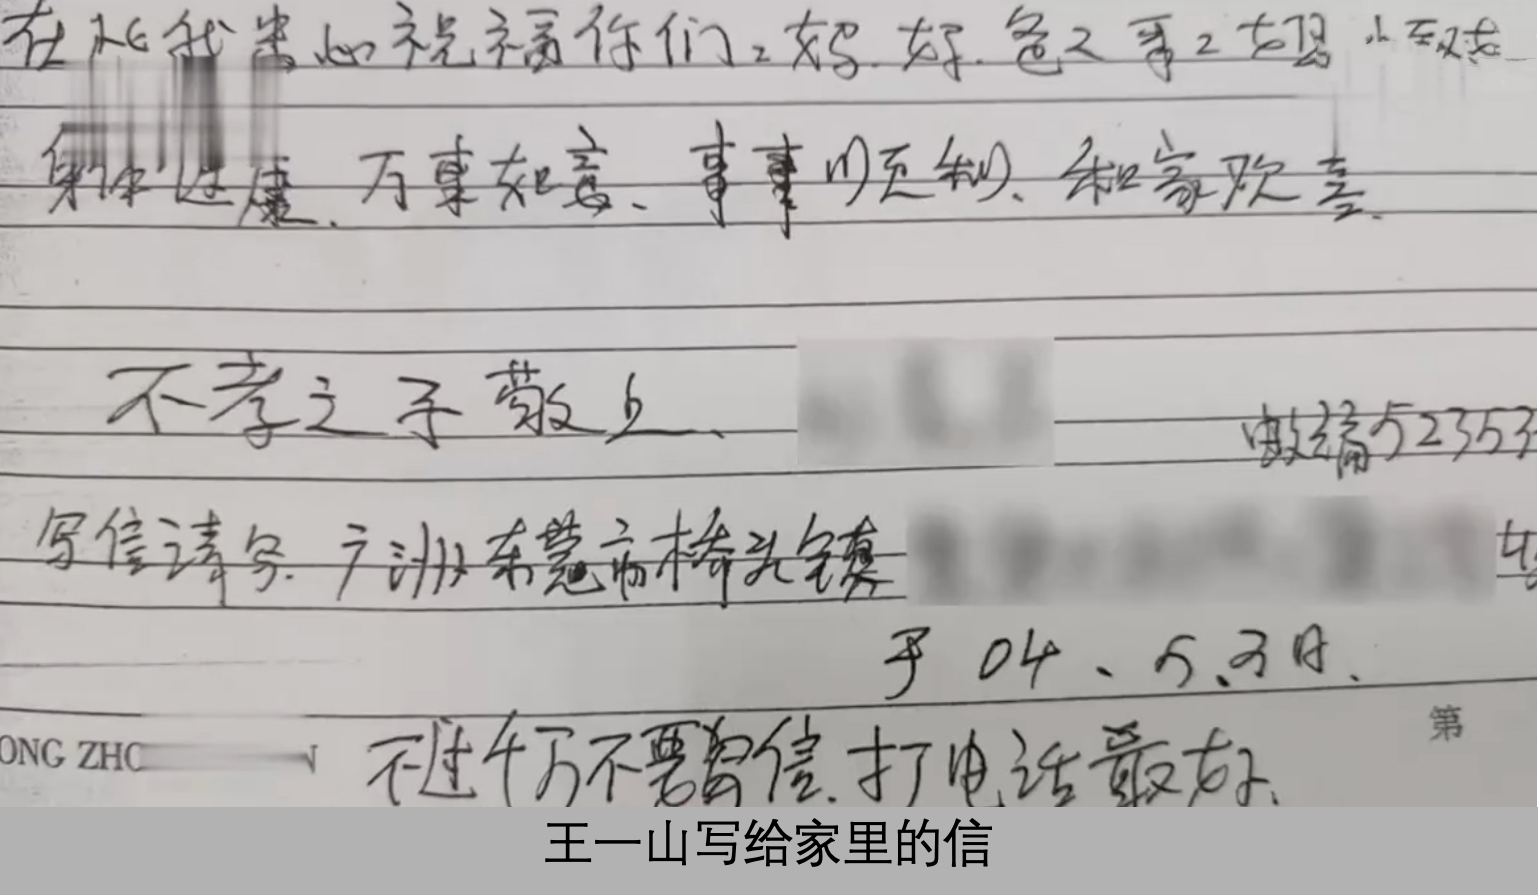 在此我衷心祝福你们。妈好.爸
身体健康.万事如意、事事顺利、和家欢喜.
不孝之子敬上、
邮编52353
写信请写.广洲东莞市桥头镇
于 04、5.3日.
第
ONG ZHO
不过千万不要写信.打电话最好、
王一山写给家里的信